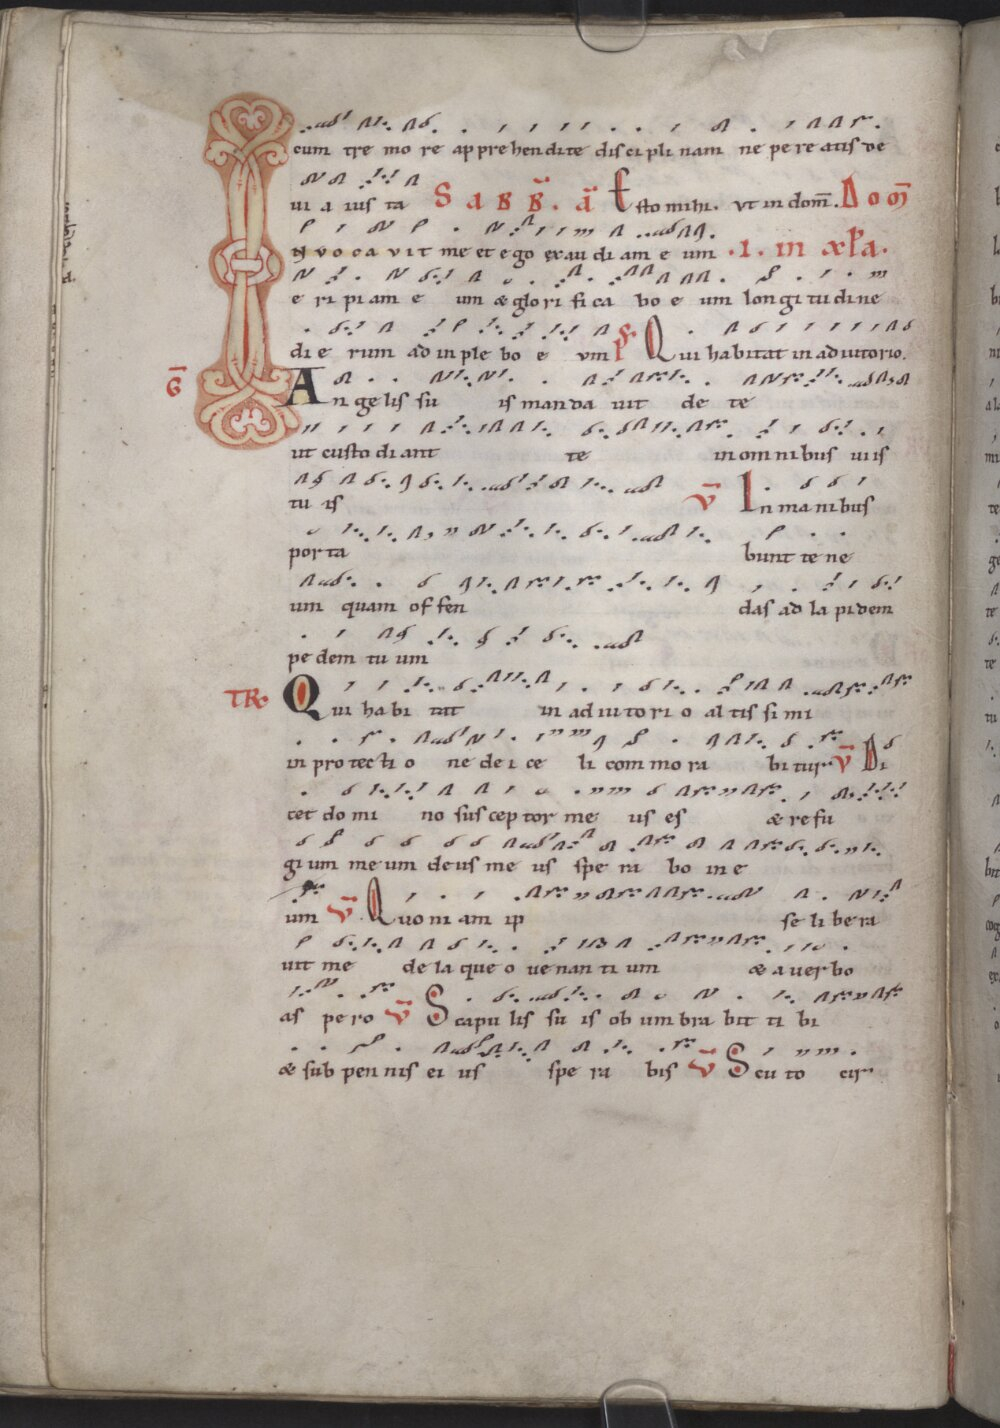 cum tre mo re apprehendite disciplinam ne pereatis de
ui a ius ta SABB̄. ā Esto mihi. vt in dom̄. Dom̄
Nvocavit me et ego exau di am e um .I. IN XƚA.
e ri piam e um & glori fi ca bo e um longi tudine
di e rum ad in ple bo e vm Ps Qui habitat in adiutorio.
Ḡ An gelis su is manda uit de te
ut custo di ant te in omnibus uiis
tu is V̄ In manibus
porta bunt te ne
um quam of fen das ad la pidem
pe dem tu um
TR Qui ha bi tat in ad iu to ri o al tis si mi
in pro tecti o ne de i ce li com mo ra bi tur V̄ Di
cet do mi no sus cep tor me us es & re fu
gi um me um deus me us spe ra bo in e
um V̄ Quo ni am ip se li bera
uit me de la que o ue nan ti um & a uerbo
as pe ro V̄ Scapu lis su is ob um bra bit ti bi
& sub pen nis ei us spe ra bis V̄ Scu to cir